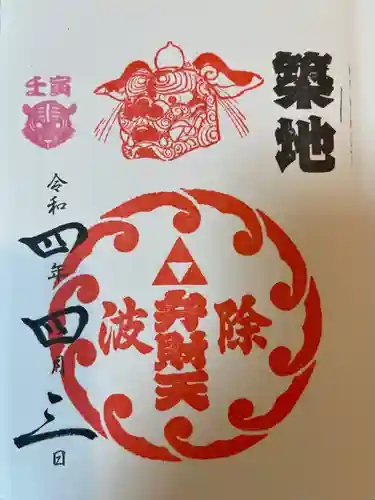 築地
除
弁財天
波
壬寅
令和四年四月三日